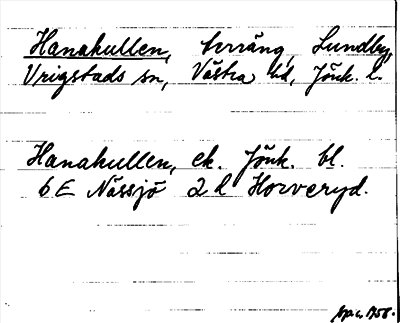 Hanakullen, terräng, Lundby,
Vrigstads sn, Västra hd, Jönk. l.
Hanakullen, ek. Jönk. bl.
6 E Nässjö 2 d Horveryd.
1958.